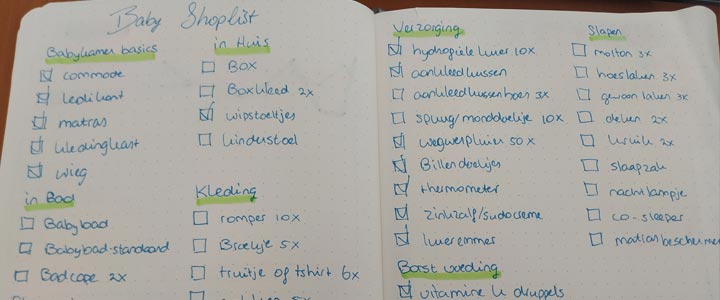 Baby Shoplist
Babykamer basics
commode
ledikant
matras
kledingkast
wieg
in Huis
Box
Boxkleed 2x
wipstoeltjes
kinderstoel
in Bad
Babybad
Babybad-standaard
Badcape 2x
Kleding
romper 10x
Broekje 5x
truitje of tshirt 6x
Verzorging
hydrofiele luier 10x
aankleedkussen
aankleedkussenhoes 3x
spuug/monddoekje 10x
wegwerpluier 50x
Billendoekjes
thermometer
zinkzalf/sudocreme
luieremmer
Borst voeding
vitamine k druppels
Slapen
molton 3x
hoeslaken 3x
gewoon laken 3x
deken 2x
kruik 2x
slaapzak
nachtlampje
co-sleeper
matrasbeschermer